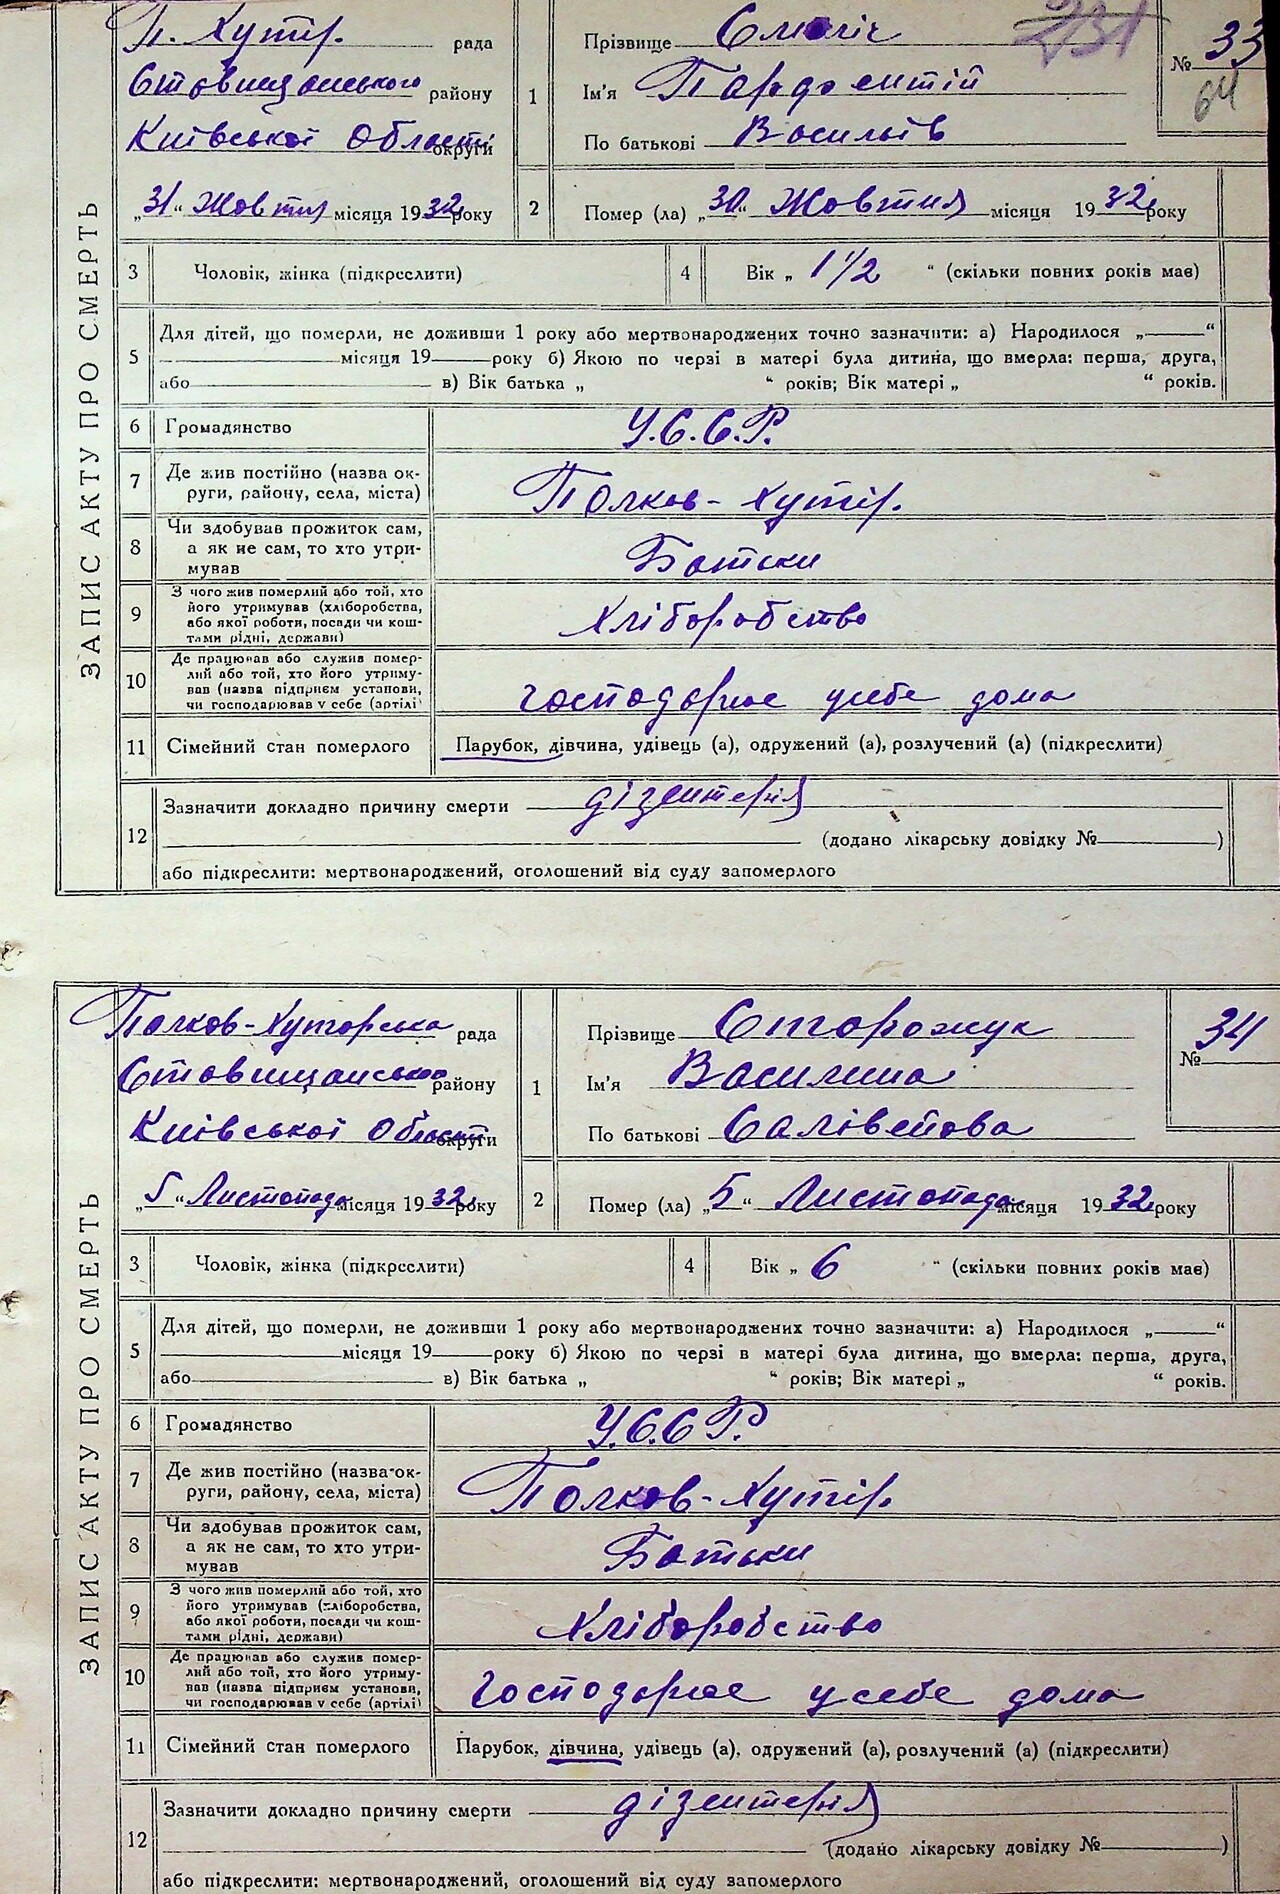 ЗАПИС АКТУ ПРО СМЕРТЬ
П. Хутір. рада
Ставищанського району
Київської Області округи
„31“ Жовтня місяця 1932 року
1
Прізвище
Ім'я Парфентій
По батькові Васильів
231
№ 33
64
2 Помер (ла) „30“ Жовтня місяця 1932 року
3 Чоловік, жінка (підкреслити)
4 Вік „ 1 1/2 “ (скільки повних років має)
5 Для дітей, що померли, не доживши 1 року або мертвонароджених точно зазначити: а) Народилося „ “
місяця 19 року б) Якою по черзі в матері була дитина, що вмерла: перша, друга,
або в) Вік батька „ “ років; Вік матері „ “ років.
6 Громадянство У.С.С.Р.
7 Де жив постійно (назва ок-
руги, району, села, міста) Полков-Хутір.
8 Чи здобував прожиток сам,
а як не сам, то хто утри-
мував Батьки
9 З чого жив померлий або той, хто
його утримував (хліборобства,
або якої роботи, посади чи кош-
тами рідні, держави) Хліборобство
10 Де працював або служив помер-
лий або той, хто його утриму-
вав (назва підприєм установи,
чи господарював у себе (артілі) господарює у себе дома
11 Сімейний стан померлого Парубок, дівчина, удівець (а), одружений (а), розлучений (а) (підкреслити)
12 Зазначити докладно причину смерти дізентерія
(додано лікарську довідку № )
або підкреслити: мертвонароджений, оголошений від суду запомерлого
ЗАПИС АКТУ ПРО СМЕРТЬ
Полков-Хуторська рада
Ставищансько району
Київської Області округи
„5“ Листопада місяця 1932 року
1
Прізвище Сторожук
Ім'я Василина
По батькові Салівейова
№ 34
2 Помер (ла) „5“ Листопада місяця 1932 року
3 Чоловік, жінка (підкреслити)
4 Вік „ 6 “ (скільки повних років має)
5 Для дітей, що померли, не доживши 1 року або мертвонароджених точно зазначити: а) Народилося „ “
місяця 19 року б) Якою по черзі в матері була дитина, що вмерла: перша, друга,
або в) Вік батька „ “ років; Вік матері „ “ років.
6 Громадянство У.С.С.Р.
7 Де жив постійно (назва ок-
руги, району, села, міста) Полков-Хутір.
8 Чи здобував прожиток сам,
а як не сам, то хто утри-
мував Батьки
9 З чого жив померлий або той, хто
його утримував (хліборобства,
або якої роботи, посади чи кош-
тами рідні, держави) Хліборобство
10 Де працював або служив помер-
лий або той, хто його утриму-
вав (назва підприєм установи,
чи господарював у себе (артілі) Господарює у себе дома
11 Сімейний стан померлого Парубок, дівчина, удівець (а), одружений (а), розлучений (а) (підкреслити)
12 Зазначити докладно причину смерти дізентерія
(додано лікарську довідку № )
або підкреслити: мертвонароджений, оголошений від суду запомерлого